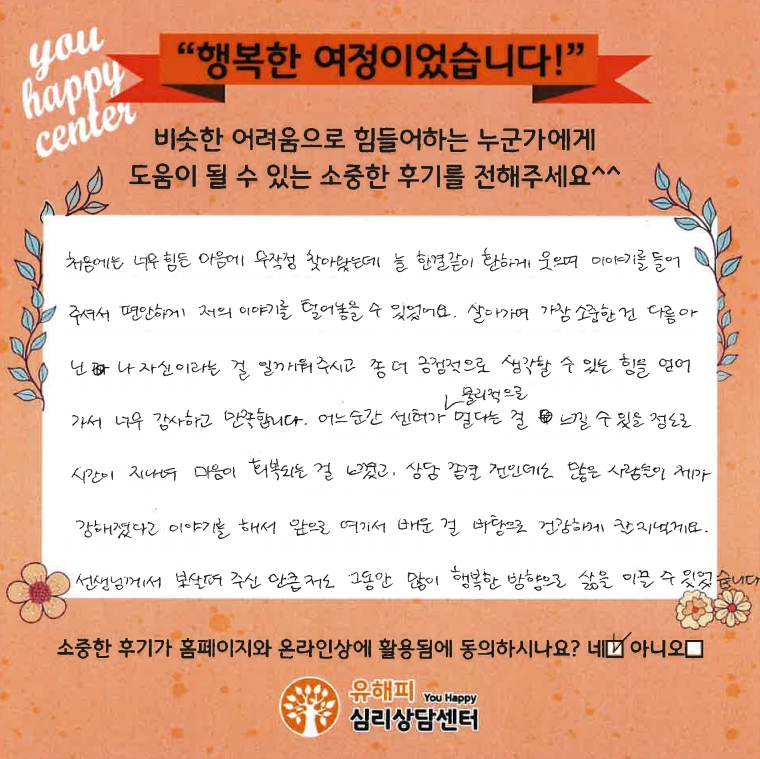 you
happy
center
“행복한 여정이었습니다!”
비슷한 어려움으로 힘들어하는 누군가에게
도움이 될 수 있는 소중한 후기를 전해주세요^^
처음에는 너무 힘든 마음에 무작정 찾아왔는데 늘 한결같이 환하게 웃으며 이야기를 들어
주셔서 편안하게 저의 이야기를 털어놓을 수 있었어요. 살아가며 가장 소중한 건 다름 아
닌 나 자신이라는 걸 일깨워주시고 좀 더 긍정적으로 생각할 수 있는 힘을 얻어
물리적으로
가서 너무 감사하고 만족합니다. 어느순간 센터가 멀다는 걸 느낄 수 있을 정도로
시간이 지나며 마음이 회복되는 걸 느꼈고, 상담 종결 전인데도 많은 사람들이 제가
강해졌다고 이야기를 해서 앞으로 여기서 배운 걸 바탕으로 건강하게 잘 지낼게요.
선생님께서 보살펴 주신 만큼 저도 그동안 많이 행복한 방향으로 삶을 이끌 수 있었습니다
소중한 후기가 홈페이지와 온라인상에 활용됨에 동의하시나요? 네☑ 아니오☐
유해피 You Happy
심리상담센터